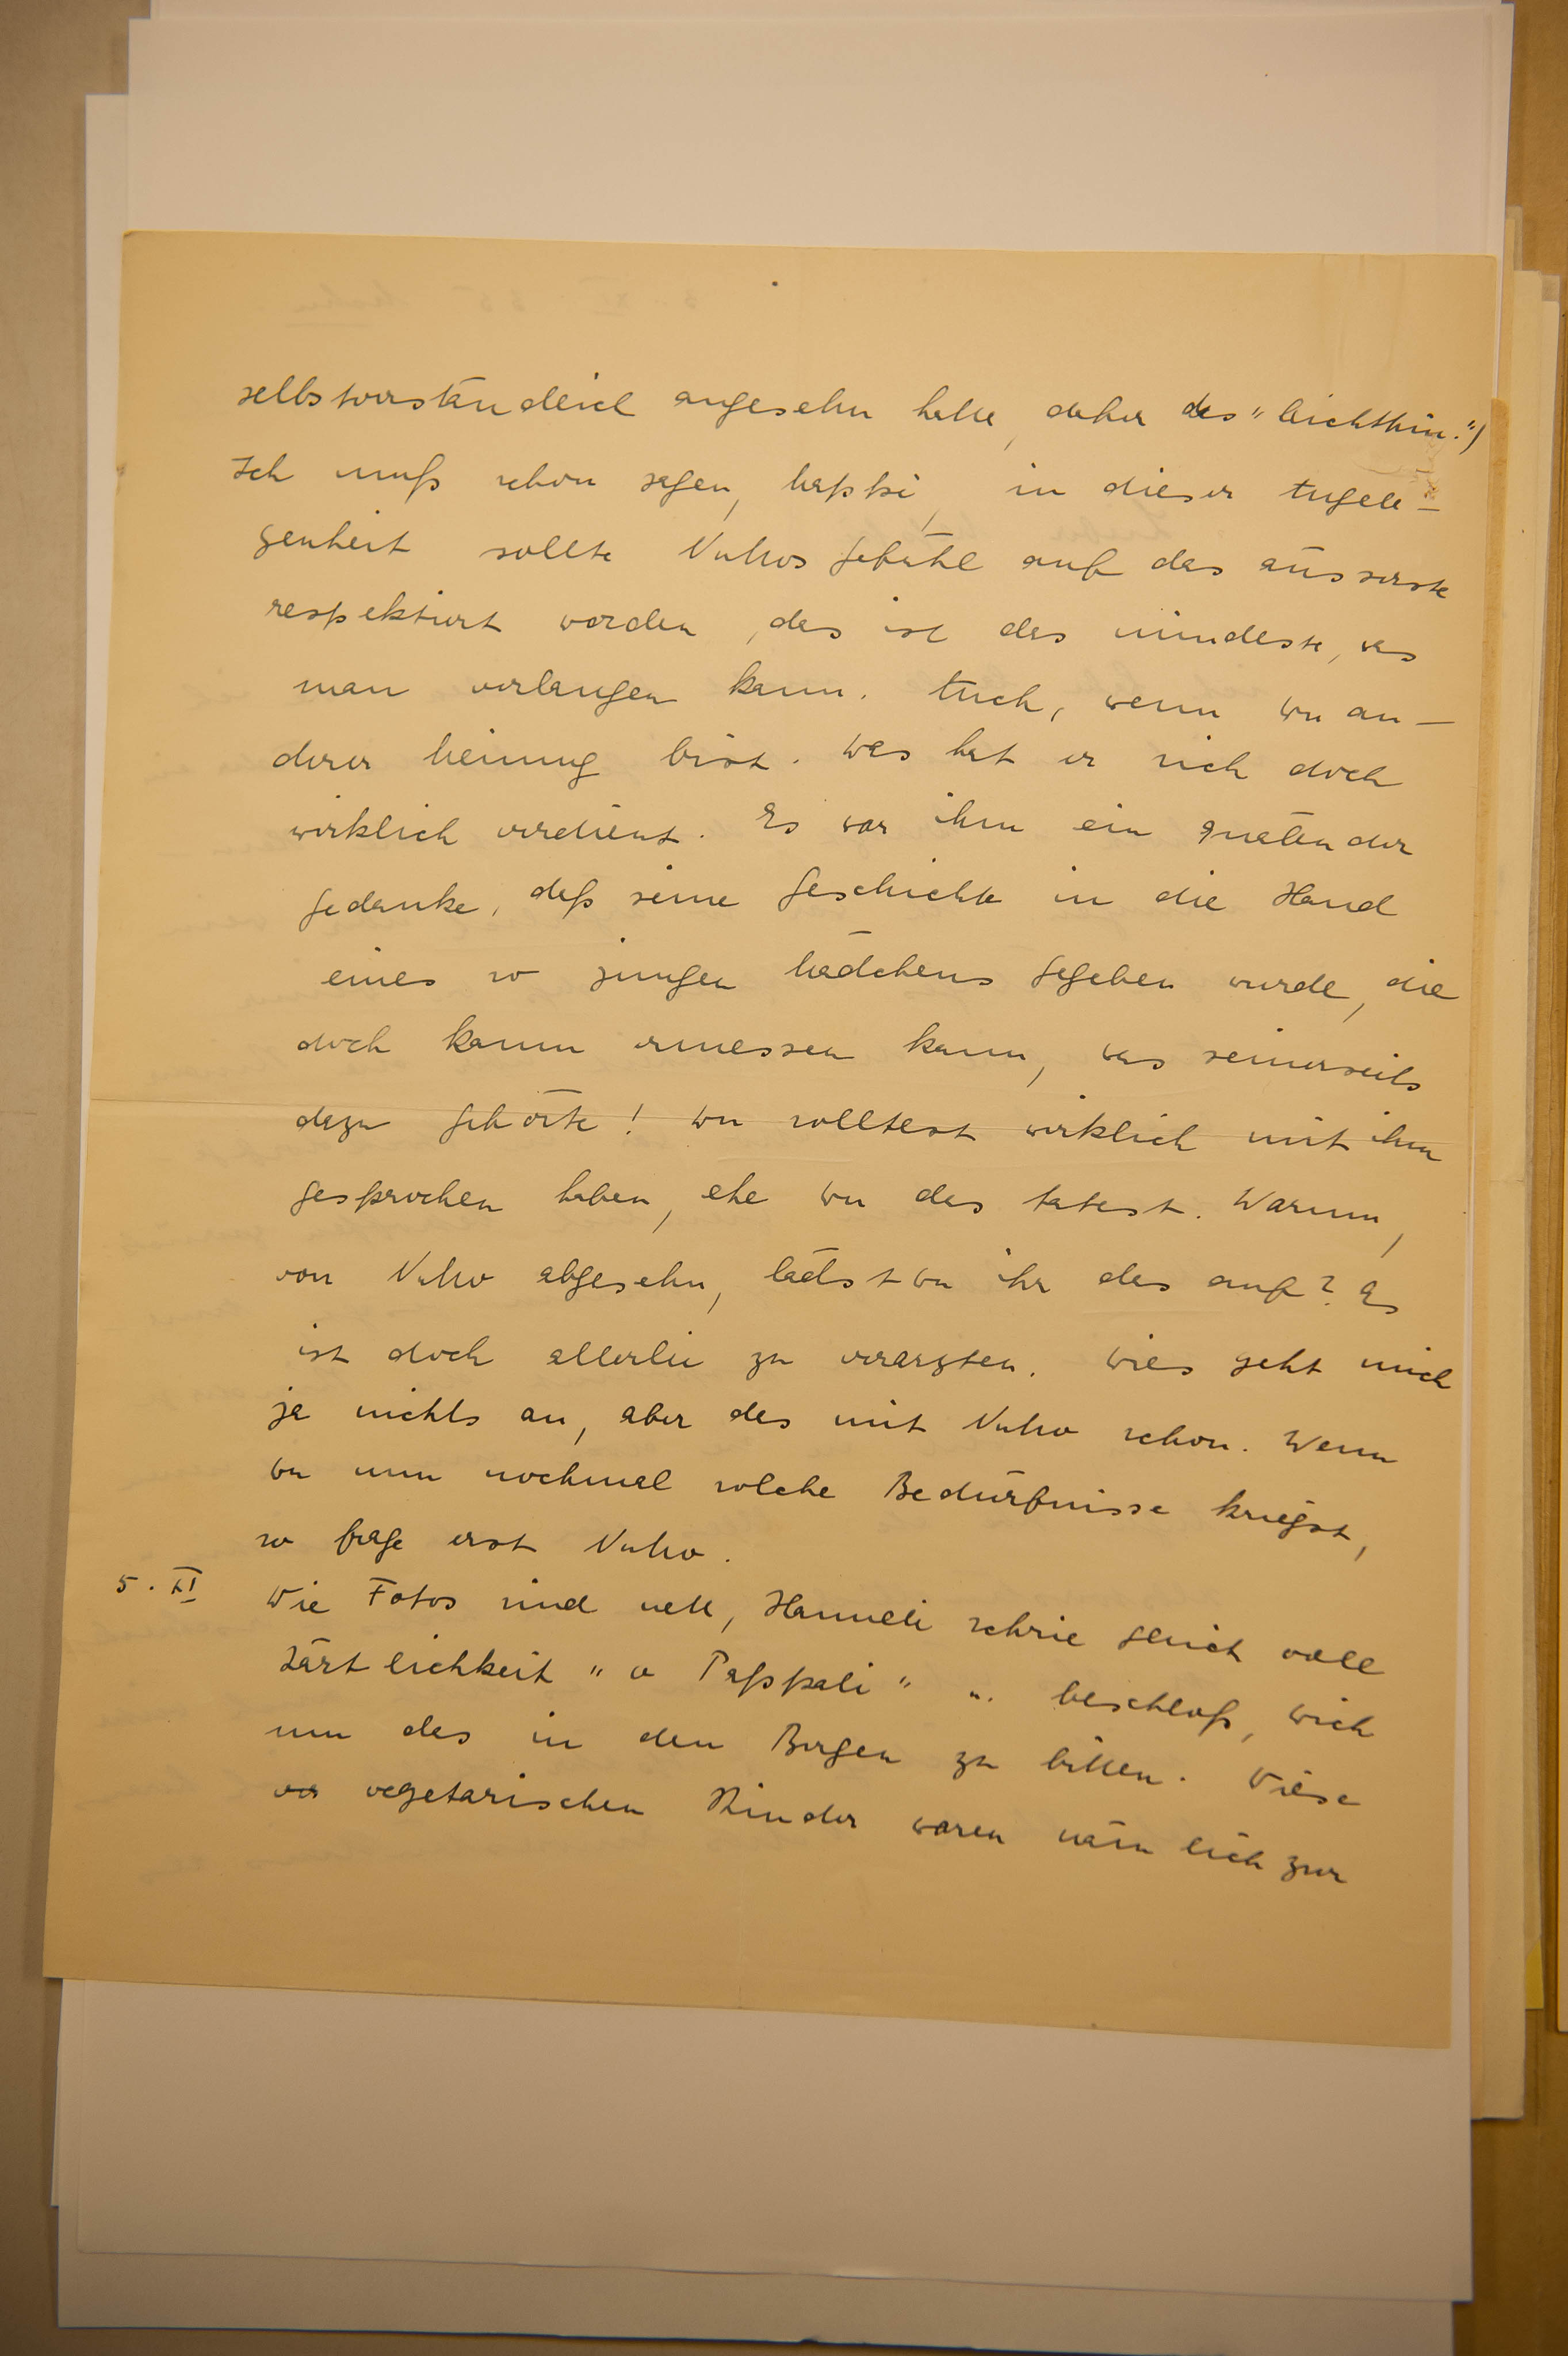 selbstverständlich angesehn hatte, daher das „leichthin.")
Ich muß schon sagen, Mappi, in dieser Angele-
genheit sollte Nuhos Gefühl auf das äusserste
respektiert werden, das ist das mindeste, was
man verlangen kann. Auch, wenn Du an-
derer Meinung bist. Das hat er sich doch
wirklich verdient. Es war ihm ein quälender
Gedanke, daß seine Geschichte in die Hand
eines so jungen Mädchens gegeben wurde, die
doch kaum ermessen kann, was seinerseits
dazu gehörte! Du solltest wirklich mit ihm
gesprochen haben, ehe Du das tatest. Warum,
von Nuho abgesehn, lädst Du ihr das auf? Es
ist doch allerlei zu verarzten. Dies geht mich
ja nichts an, aber das mit Nuho schon. Wenn
Du nun nochmal solche Bedürfnisse kriegst,
so frage erst Nuho.
5. XI Die Fotos sind nett, Hanneli schrie gleich voll
Zärtlichkeit „o Pappali" u. beschloß, Dich
um das in den Bergen zu bitten. Diese
vegetarischen Kinder waren nämlich zur